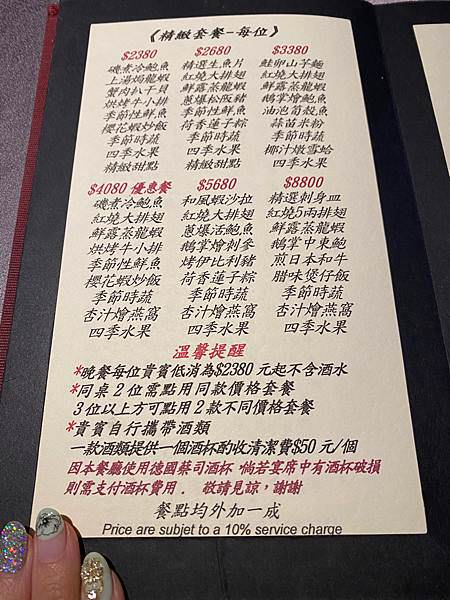 《精緻套餐-每位》
$2380 $2680 $3380
磯煮冷鮑魚 精選生魚片 鮭卵山芋麵
上湯焗龍蝦 紅燒大排翅 紅燒大排翅
蟹肉扒干貝 鮮露蒸龍蝦 鮮露蒸龍蝦
烘烤牛小排 蔥爆松阪豬 鵝掌燴鮑魚
季節性鮮魚 季節性鮮魚 油泡筍殼魚
櫻花蝦炒飯 荷香蓮子粽 蒜苗米粉
季節時蔬 季節時蔬 季節時蔬
四季水果 四季水果 椰汁燉雪蛤
精緻甜點 精緻甜點 四季水果
$4080 優惠餐 $5680 $8800
磯煮冷鮑魚 和風蝦沙拉 精選刺身皿
紅燒大排翅 紅燒大排翅 紅燒5兩排翅
鮮露蒸龍蝦 蔥爆活鮑魚 鮮露蒸龍蝦
烘烤牛小排 鵝掌燴刺參 鵝掌中東鮑
季節性鮮魚 烤伊比利豬 煎日本和牛
櫻花蝦炒飯 荷香蓮子粽 腊味煲仔飯
季節時蔬 季節時蔬 季節時蔬
杏汁燉燕窩 杏汁燉燕窩 杏汁燉燕窩
四季水果 四季水果 四季水果
溫馨提醒
*晚餐每位貴賓低消為$2380元起不含酒水
*同桌2位需點用同款價格套餐
3位以上方可點用2款不同價格套餐
*貴賓自行攜帶酒類
一款酒類提供一個酒杯酌收清潔費$50元/個
因本餐廳使用德國蔡司酒杯 倘若宴席中有酒杯破損
則需支付酒杯費用. 敬請見諒,謝謝
餐點均外加一成
Price are subjet to a 10% service charge